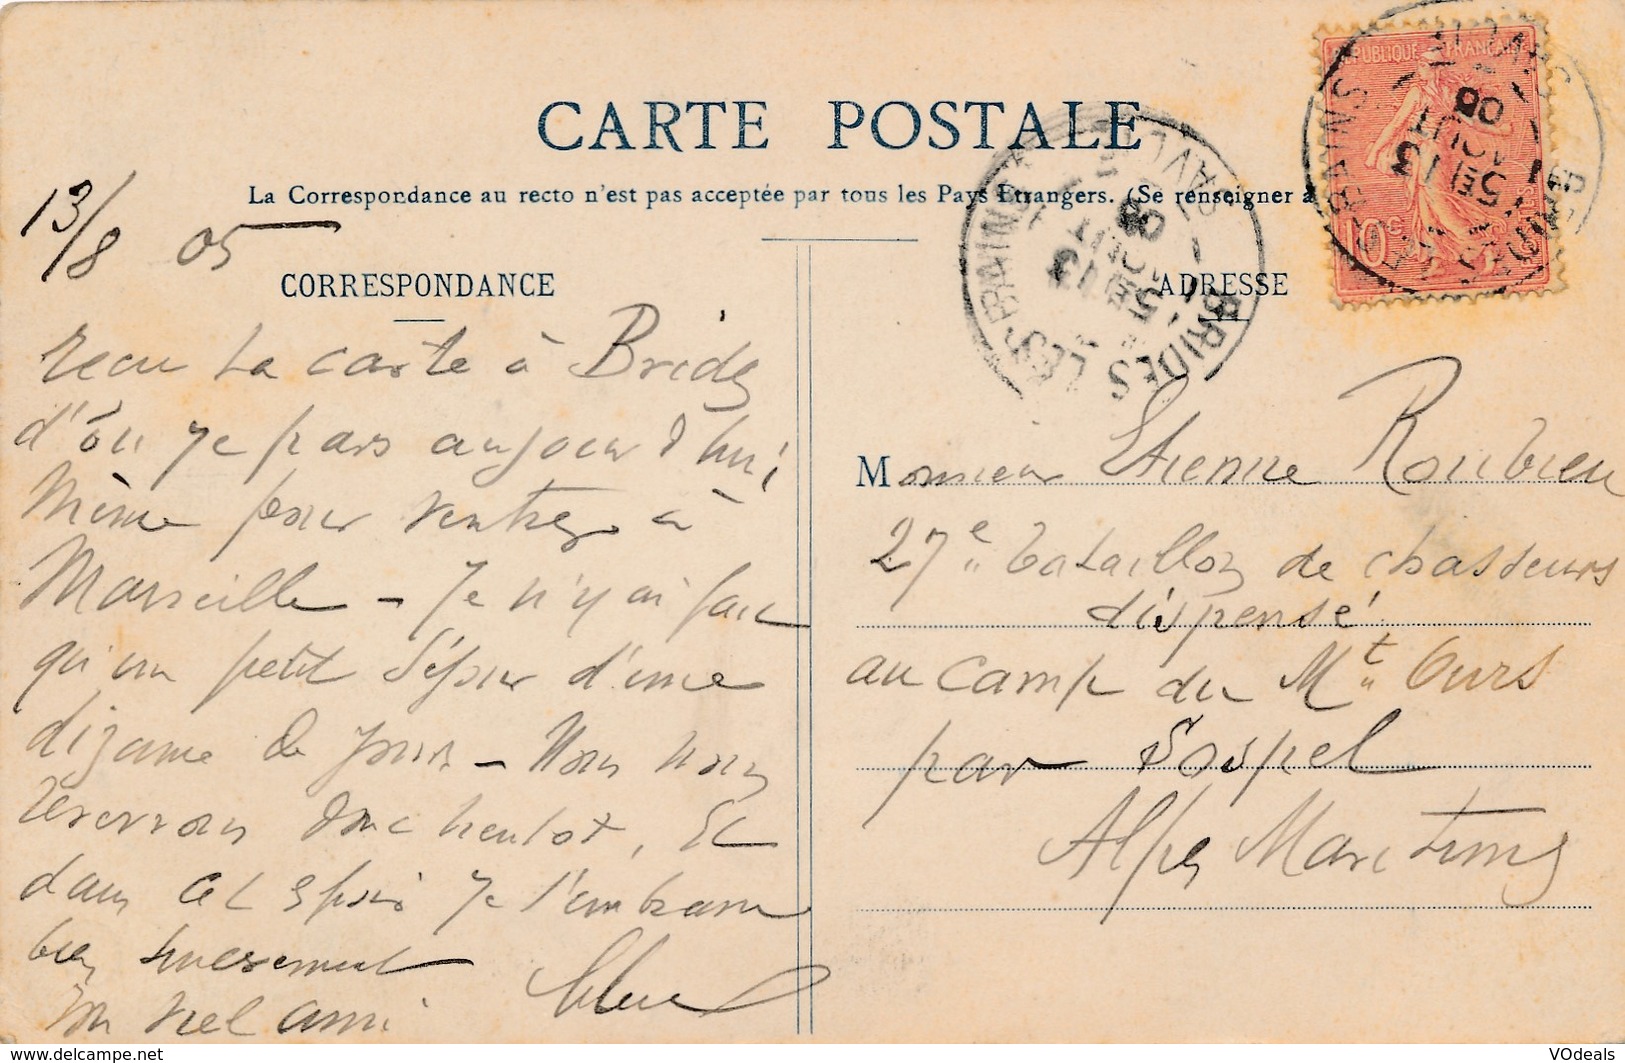 CARTE POSTALE
La Correspondance au recto n'est pas acceptée par tous les Pays Etrangers. (Se renseigner à
13/8 05
CORRESPONDANCE
recu ta carte à Brides
d'ôu je pars aujour d'hui
même pour rentrer à
Marseille - Je n'y ai fait
qu'un petit séjour d'une
dizaine de jours - Nous nous
reverrons donc bientot, Et
dans cet espoir je t'embrasse
bien sincerement
Ton viel ami
ADRESSE
Monsieur Etienne Roubieu
27e bataillon de chasseurs
dispensé
au camp du Mt Ours
par Sospel
Alpes Maritimes
REPUBLIQUE FRANÇAISE
10c
BRIDES LES BAINS
SAVOIE
5E 13
AOUT
05
BRIDES LES BAINS
SAVOIE
5E 13
AOUT
05
http://www.delcampe.net
VOdeals